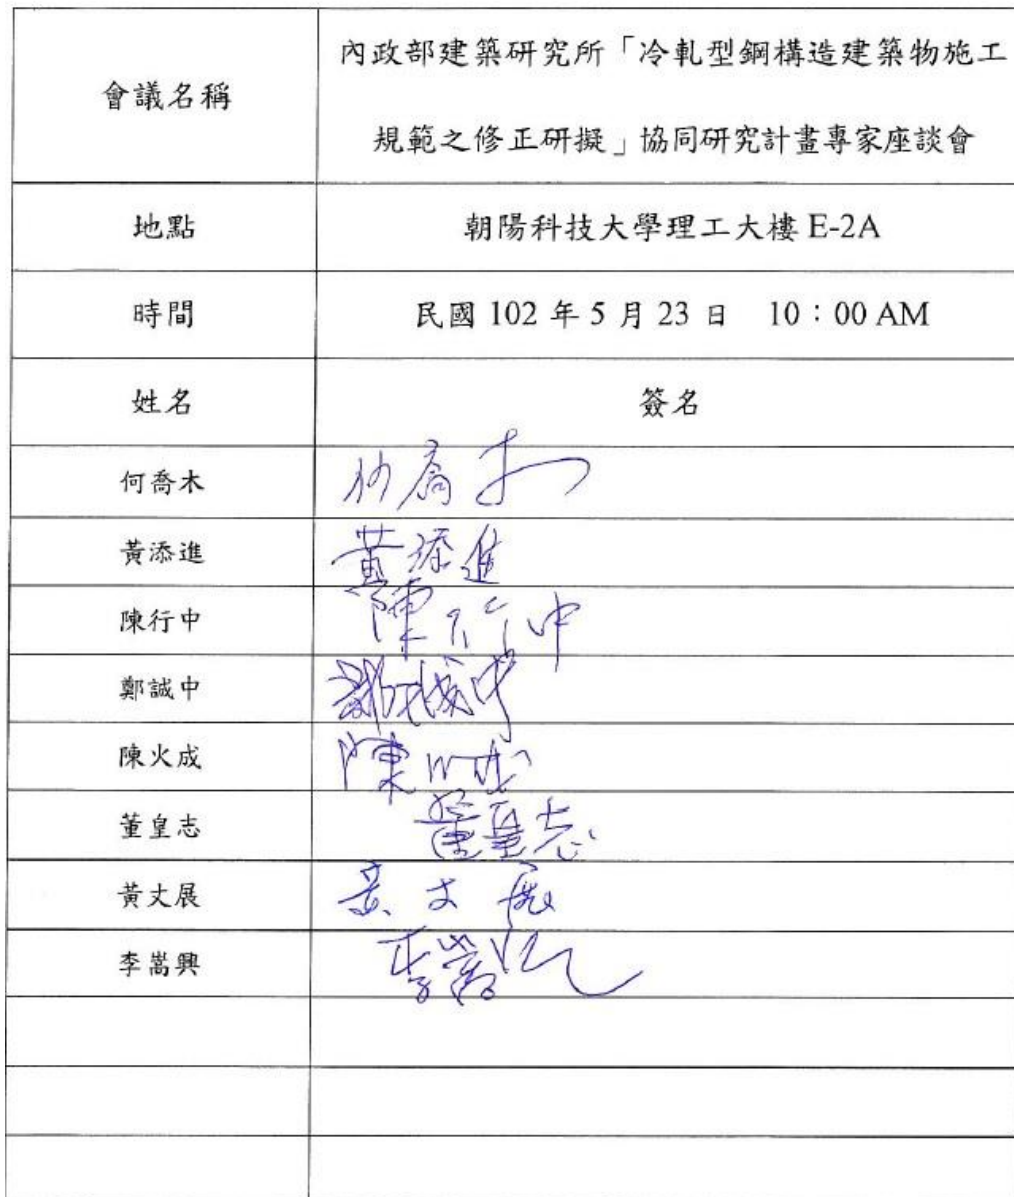 會議名稱
內政部建築研究所「冷軋型鋼構造建築物施工
規範之修正研擬」協同研究計畫專家座談會
地點
朝陽科技大學理工大樓 E-2A
時間
民國 102 年 5 月 23 日 10：00 AM
姓名
簽名
何喬木
何喬木
黃添進
黃添進
陳行中
陳行中
鄭誠中
鄭誠中
陳火成
陳火成
董皇志
董皇志
黃丈展
黃文展
李嵩興
李嵩興